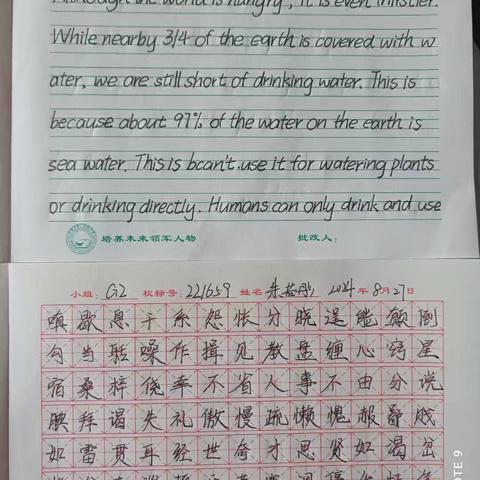 Although the world is hungry, it is even thirstier.
While nearby 3/4 of the earth is covered with w
ater, we are still short of drinking water. This is
because about 97% of the water on the earth is
sea water. This is bcan't.use it for watering plants
or drinking directly. Humans can only drink and use
培养未来领军人物 批改人：
小组：G2 校标号：221659 姓名 朱 2024年8月27日
嗔歇息于系怨怅分晓逞能颠倒
勾当聒噪作揖见教盘缠心窍星
宿桑梓侥幸不省人事不由分说
腆拜谒失礼傲慢疏懒愧赧贬
如雷贯耳经世奇才思贤如渴岔
NOTE 9